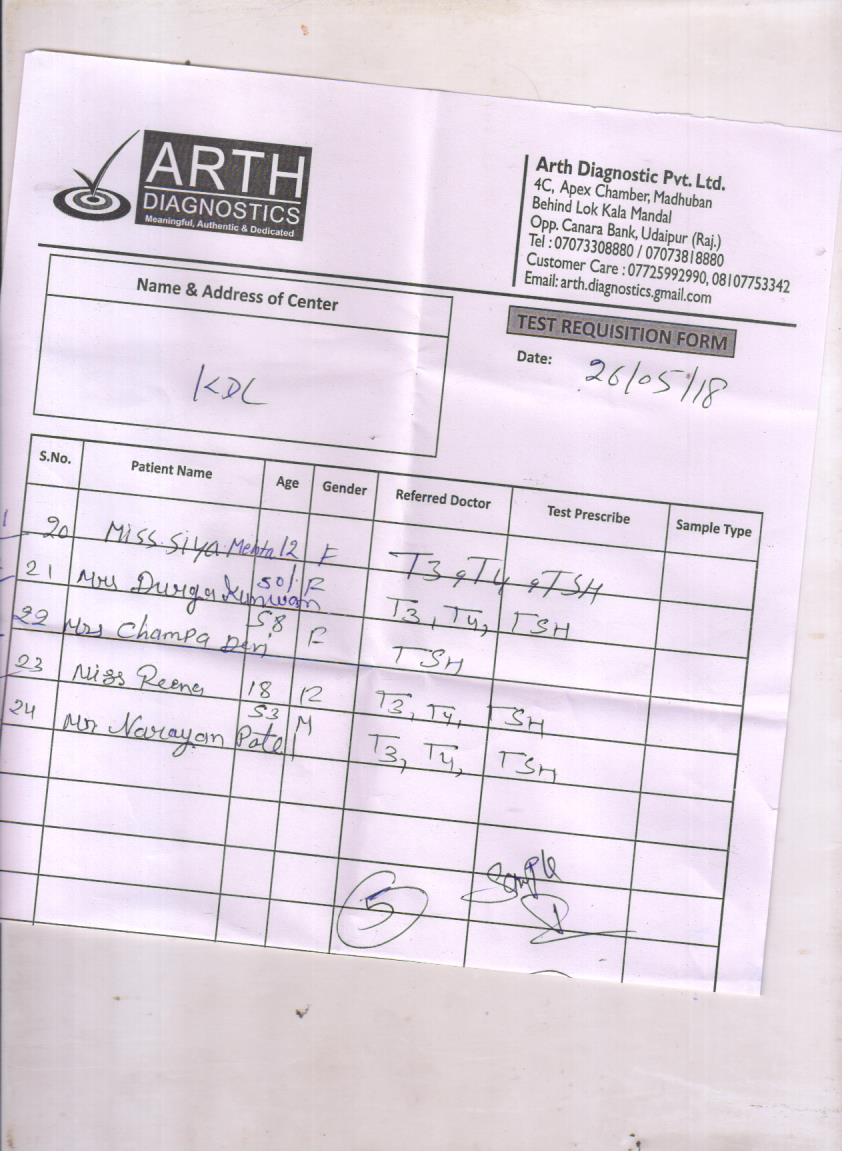 ARTH
DIAGNOSTICS
Meaningful, Authentic & Dedicated
Arth Diagnostic Pvt. Ltd.
4C, Apex Chamber, Madhuban
Behind Lok Kala Mandal
Opp. Canara Bank, Udaipur (Raj.)
Tel : 07073308880 / 07073818880
Customer Care : 07725992990, 08107753342
Email: arth.diagnostics.gmail.com
Name & Address of Center
KDL
TEST REQUISITION FORM
Date: 26/05/18
S.No. Patient Name Age Gender Referred Doctor Test Prescribe Sample Type
20 Miss. Siya Mehta 12 F T3, T4, TSH
21 Mrs Durga Kunwar 50 F T3, T4, TSH
22 Mrs Champa Devi 58 F TSH
23 Miss Reena 18 F T3, T4, TSH
24 Mr Narayan Patel 53 M T3, T4, TSH
5 Sample